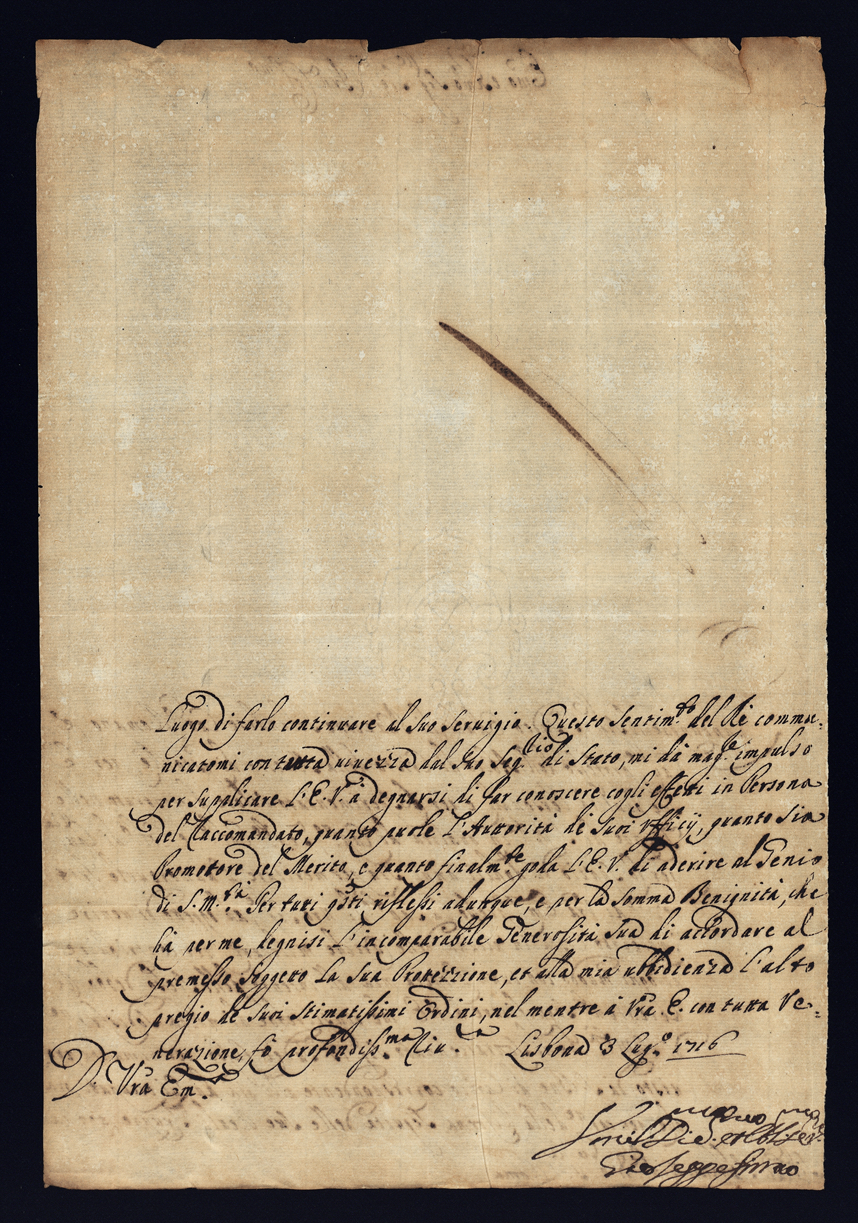 Luogo di farlo continuare al suo servigio. Questo sentim.to del Rè commu=
nicatomi con tutta vivezza dal suo Seg.rio di Stato, mi dà mag.re impulso
per supplicare L'E.V. à degnarsi di far conoscere cogli effetti in Persona
del Raccomandato, quanto puole L'Auttorità de suoi ufficij, quanto sia
Promottore del Merito, e quanto finalm.te goda L'E.V. di aderire al Genio
di S.M.tà Per tutti q.sti riflessi adunque, e per la somma Benignità, che
hà per me, degnisi L'incomparabile Generosità sua di accordare al
premesso soggetto La sua Protezzione, et alla mia ubbidienza l'alto
pregio de suoi stimatissimi Ordini, nel mentre à Vra E. con tutta Ve=
nerazione, fò profondiss.ma Riv.za Lisbona 3 Lug.o 1716
D. Vra Em.za